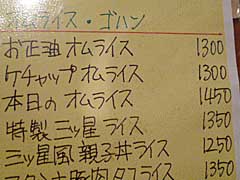 オムライス・ゴハン
お正油 オムライス 1300
ケチャップ オムライス 1300
本日の オムライス 1450
特製 三ッ星 ライス 1350
三ッ星風 親子丼ライス 1250
ライス 1350